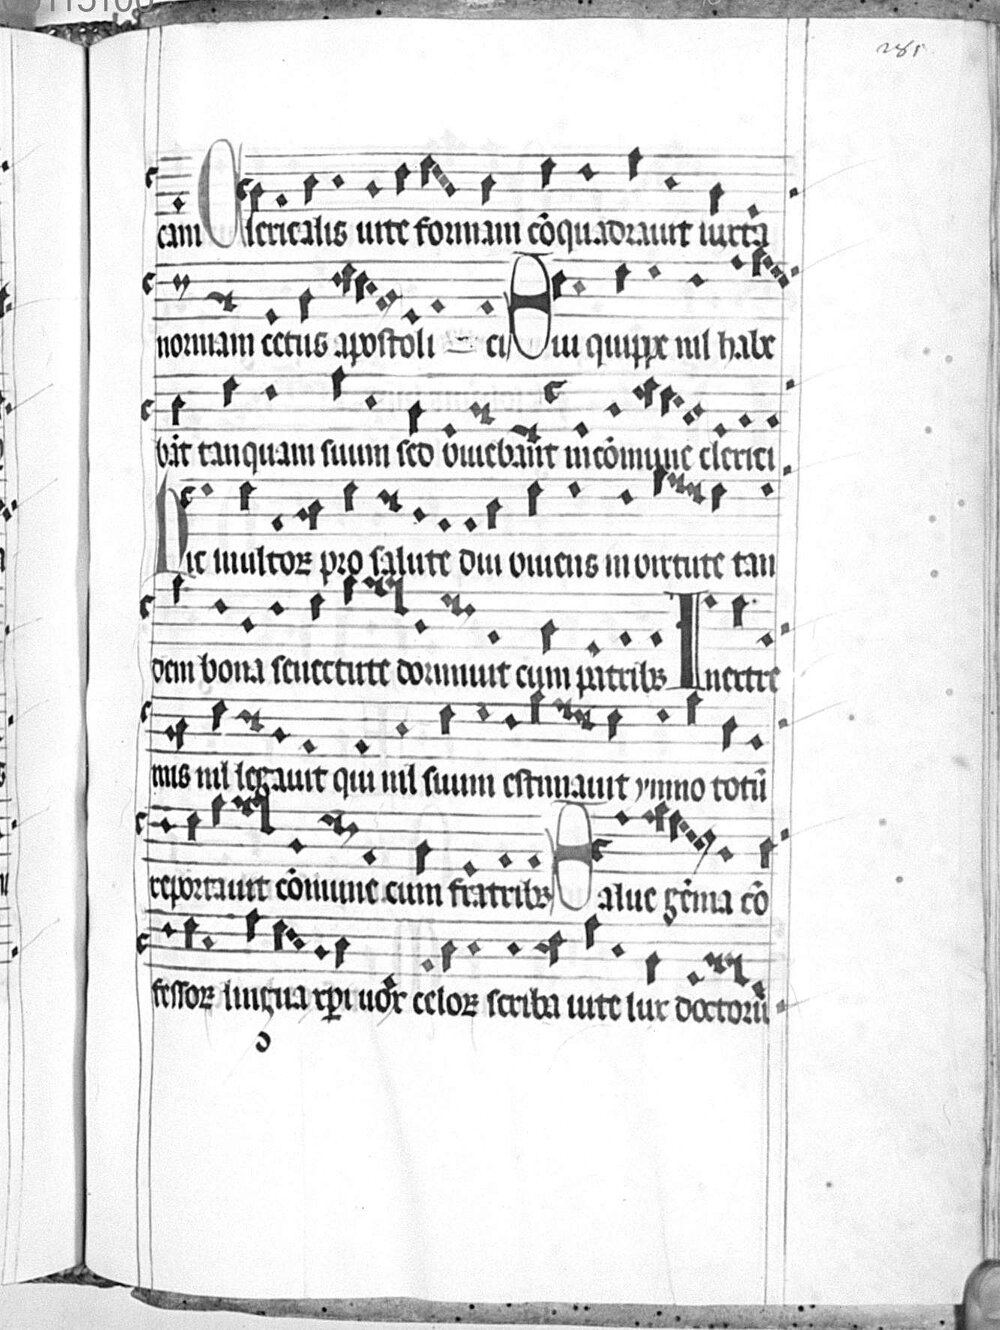 281
cam Clericalis uite formam cõquadrauit iuxta
normam cetus apostoli - ci Qui quippe nil habe
bãt tanquam suum sed uiuebant in cõmune clerici
Hic multoꝝ pro salute diu uiuens in uirtute tan
dem bona senectute dormiuit cum patribꝫ In extre
mis nil legauit qui nil suum estimauit ymmo totũ
reportauit cõmune cum fratribꝫ Salue gẽma cõ
fessoꝝ lingua xp̄i uox celoꝝ scriba uite lux doctorũ